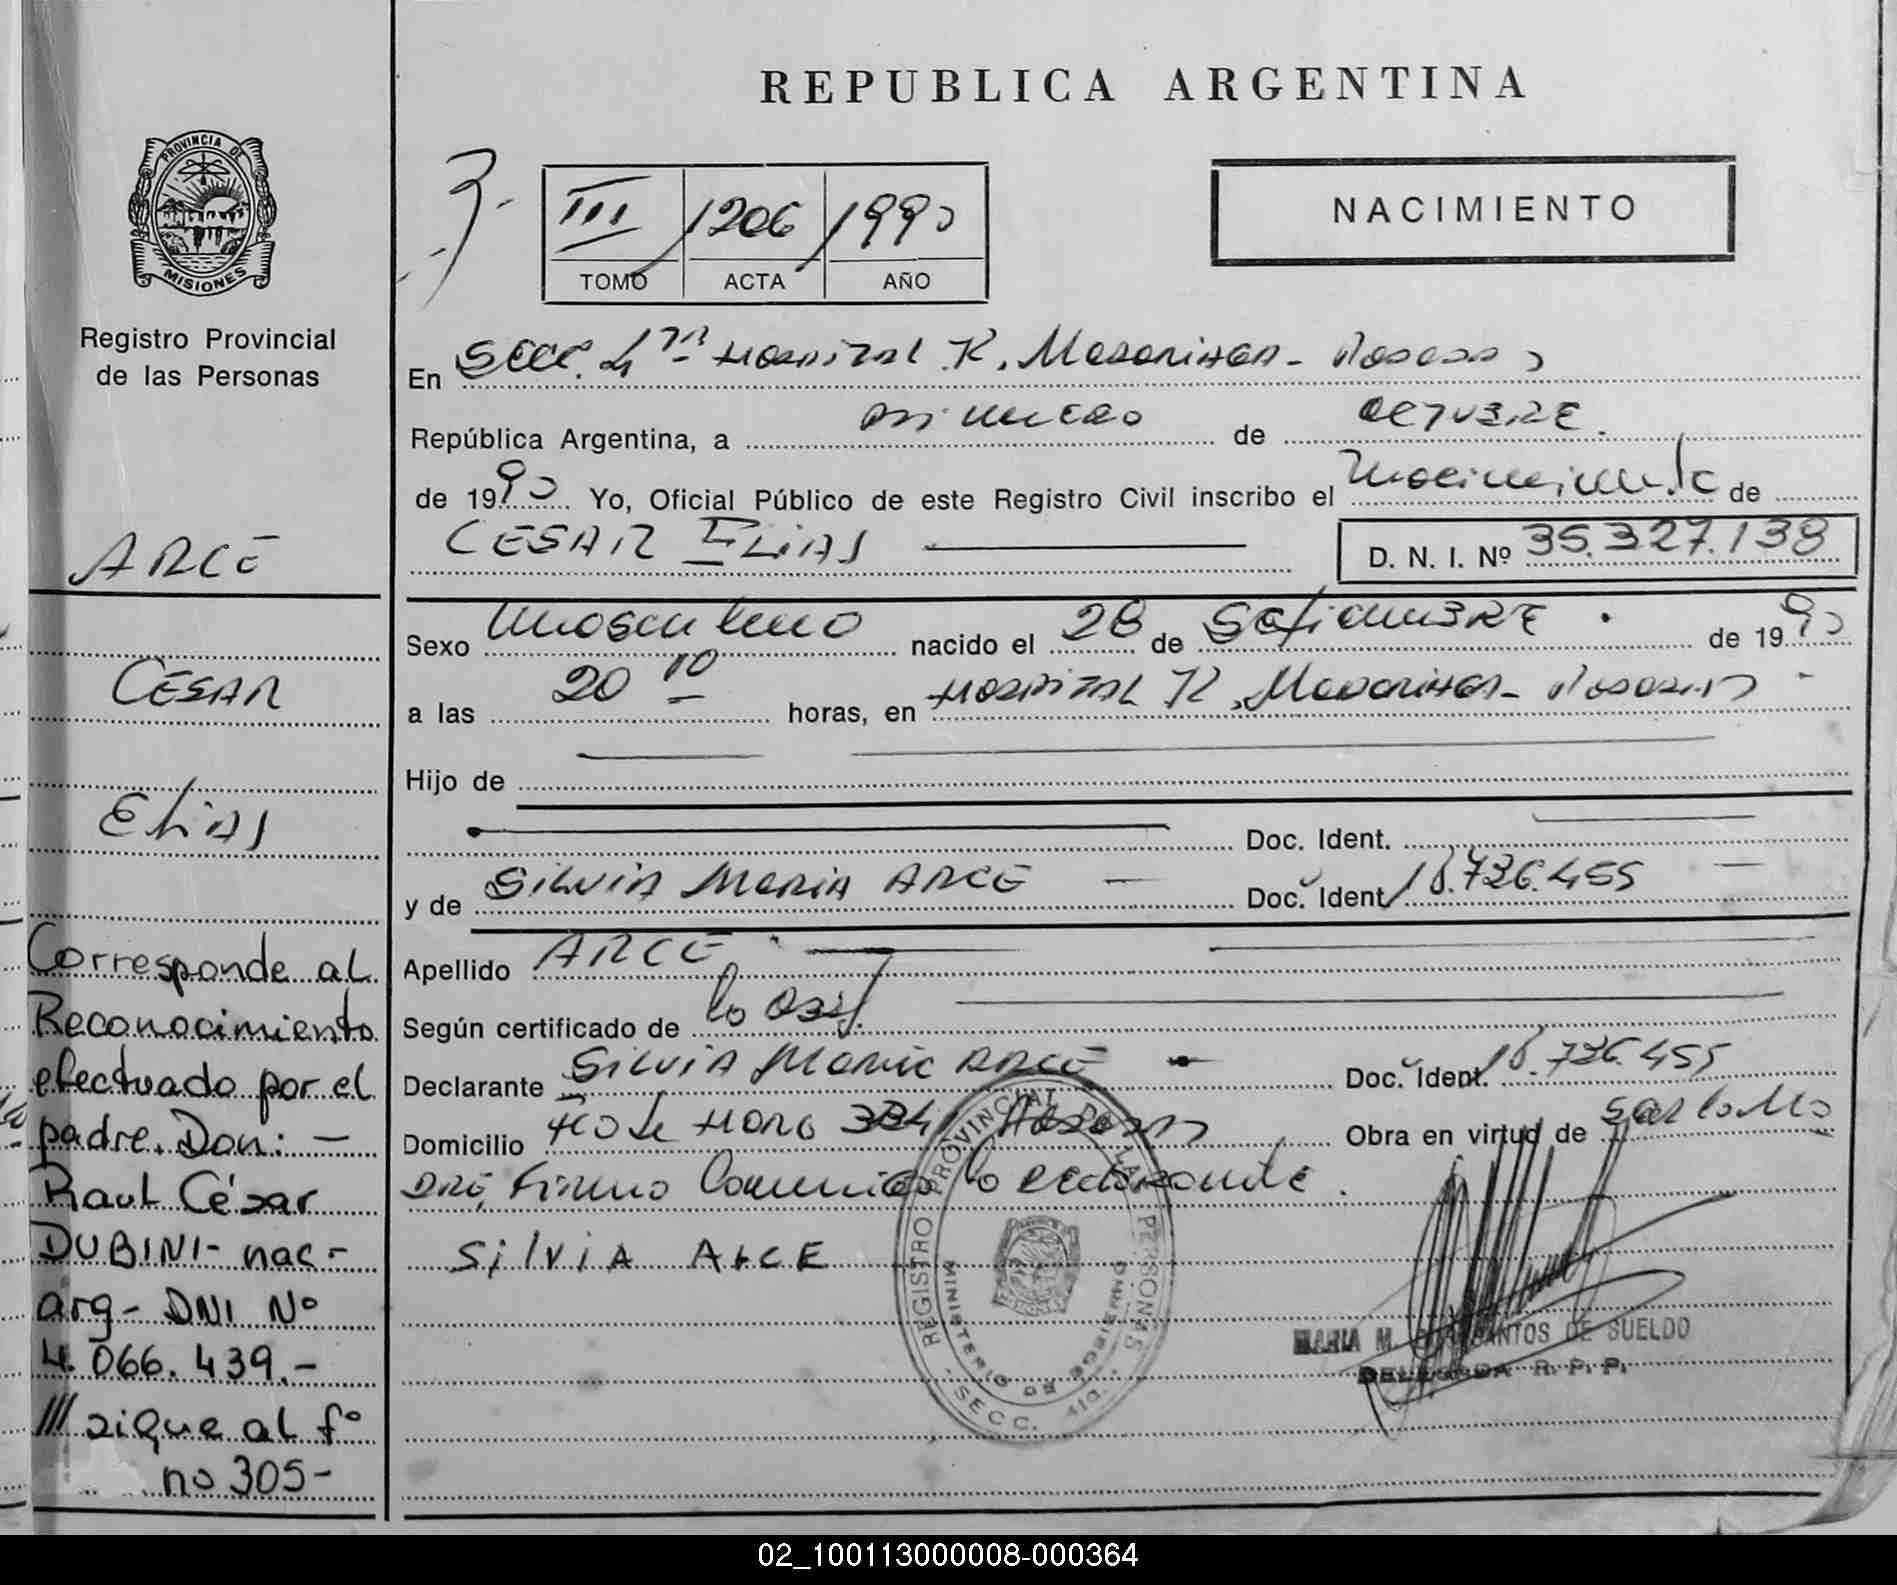 REPUBLICA ARGENTINA
PROVINCIA DE
MISIONES
Registro Provincial
de las Personas
3-
III 1206 1990
TOMO ACTA AÑO
NACIMIENTO
En Secc. 4ta Hospital R. Madariaga - Posadas
República Argentina, a primero de OCTUBRE.
de 1990 Yo, Oficial Público de este Registro Civil inscribo el nacimiento de
CESAR ELIAS
D. N. I. Nº 35.327.138
Sexo masculino nacido el 28 de SETIEMBRE de 1990
a las 20 10 horas, en HOSPITAL R. Madariaga - Posadas -
Hijo de
Doc. Ident.
y de SILVIA MARIA ARCE - Doc. Ident. 18.736.455 -
Apellido ARCE
Según certificado de la
Declarante SILVIA Maria ARCE - Doc. Ident. 18.736.455
Domicilio Posadas Obra en virtud de
Firma la declarante.
SILVIA ARCE
REGISTRO PROVINCIAL DE LAS PERSONAS
MINISTERIO DE GOBIERNO
- SECC. 4ta. -
MARIA M. SANTOS DE SUELDO
DELEGADA R. P. P.
ARCE
CESAR
ELIAS
Corresponde al
Reconocimiento
efectuado por el
padre. Don: -
Raul César
DUBINI - nac -
arg - DNI Nº
4.066.439.-
/// sigue al fº
nº 305-
02_100113000008-000364